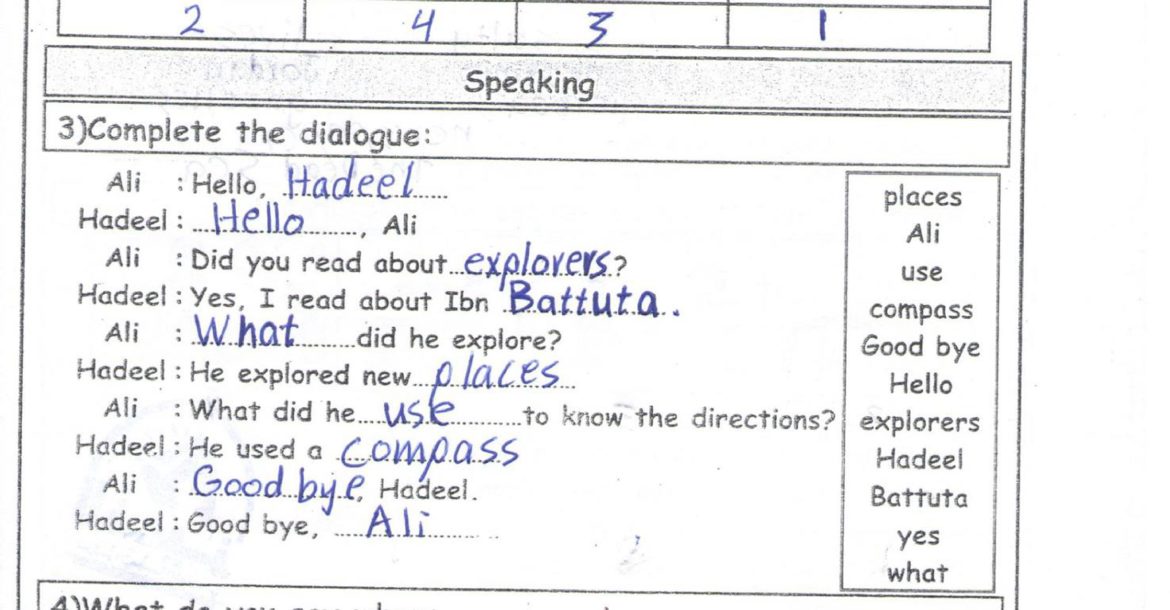 2 4 3 1
Speaking
3)Complete the dialogue:
Ali : Hello, Hadeel
Hadeel : Hello, Ali
Ali : Did you read about explorers?
Hadeel : Yes, I read about Ibn Battuta.
Ali : What did he explore?
Hadeel : He explored new places
Ali : What did he use to know the directions?
Hadeel : He used a compass
Ali : Good bye, Hadeel.
Hadeel : Good bye, Ali
places
Ali
use
compass
Good bye
Hello
explorers
Hadeel
Battuta
yes
what
4)What do you